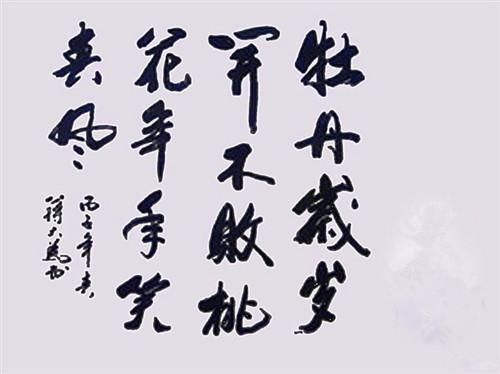 牡丹歲岁
開不敗桃
花年年笑
春风
丙子年春
蒋大為书